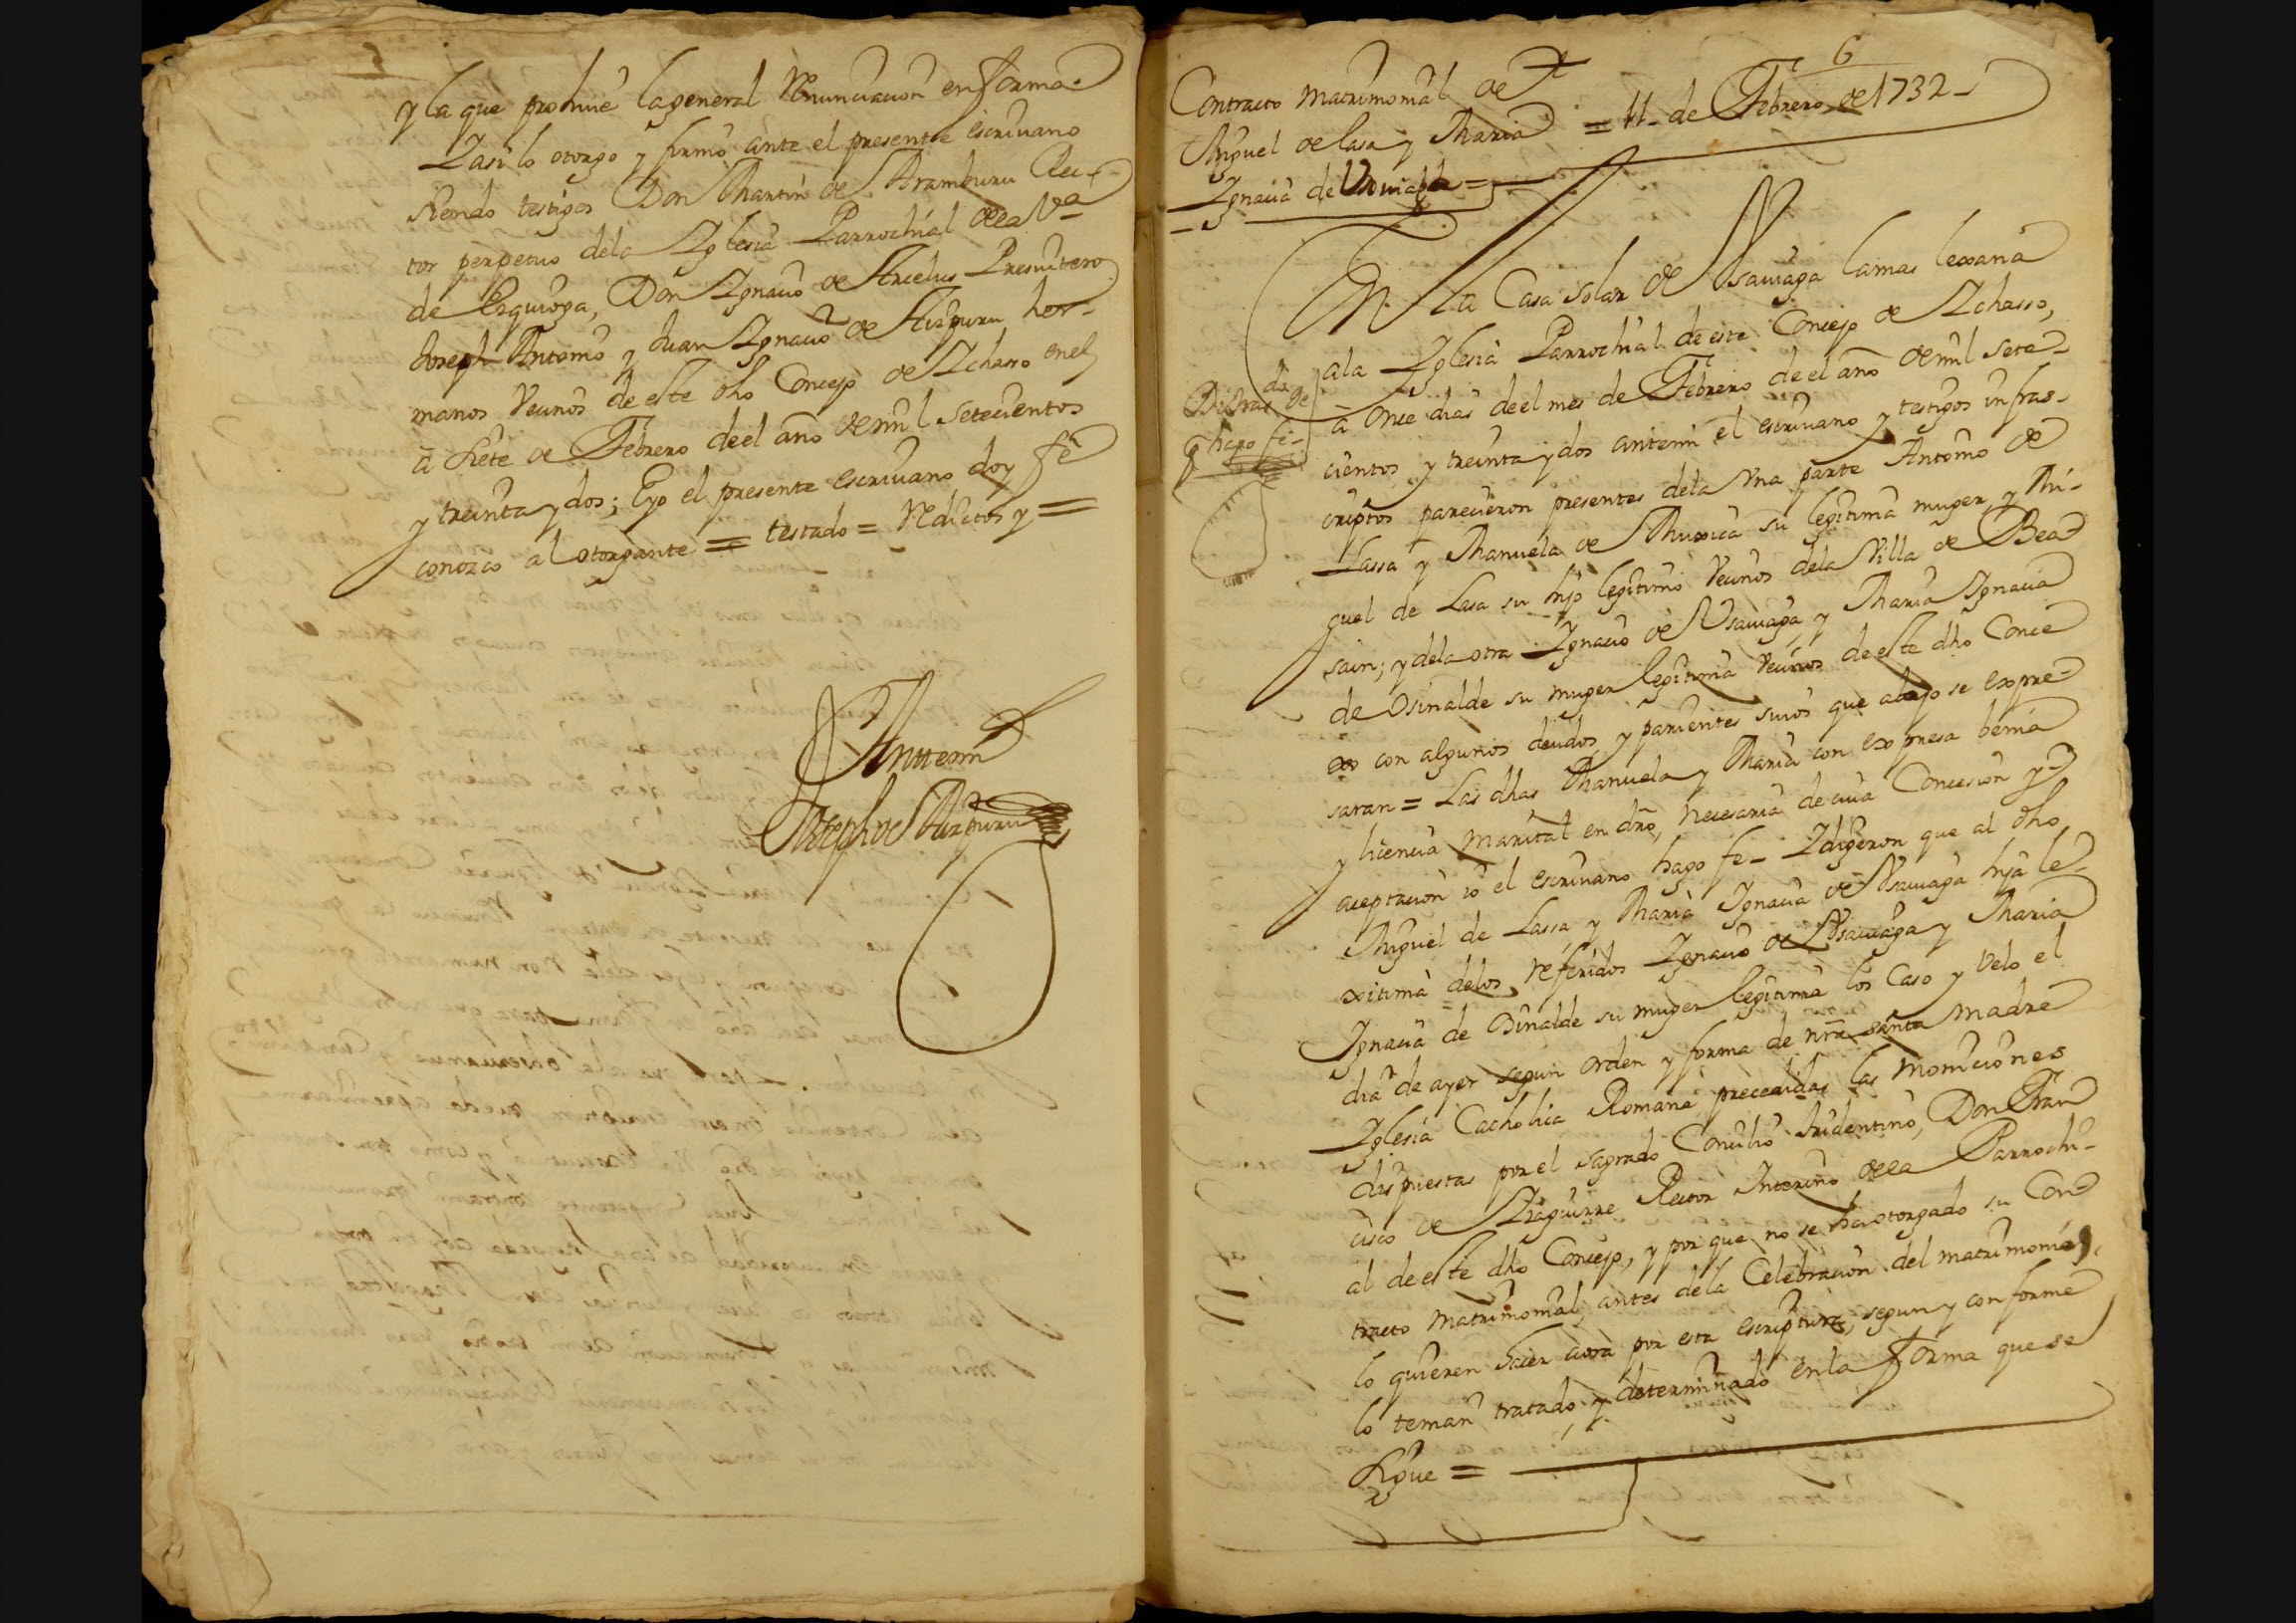 y la que prohiue la general Renunciacion en forma.
Y asi lo otorgo y firmo ante el presente escriuano
siendo testigos Don Martin de Aramburu Rec-
tor perpetuo dela Yglesia Parrochial dela Va
de Ezquioga, Don Ygnacio de Arcelus Presuitero
Joseph Antonio y Juan Ygnacio de Aizpuru her-
manos Vecinos de este dho Concejo de Ychasso en el
a siete de Febrero de el año de mil setecientos
y treinta y dos; E yo el presente escriuano doy fe
conozco al otorgante = testado = Reditos y =
Antemi
Joseph de Aizpuru
6
Contracto matrimonial de
Miguel de lasa y Maria = 11 de Febrero de 1732
Ygnacia de
En la Casa solar de Vsauiaga la mas lexana
a la Yglesia Parrochial de este Concejo de Ychasso,
a Once dias de el mes de Febrero de el año de mil sete-
cientos y treinta y dos antemi el escriuano y testigos infras-
criptos parecieron presentes dela Vna parte Antonio de
Lassa y Manuela de Muxica su legitima muger, y Mi-
guel de Lasa su hijo legitimo Vecinos dela Villa de Bea
sain; y dela otra Ygnacio de Vsauiaga y Maria Ygnacia
de Osinalde su muger legitima Vecinos de este dho Conce
xo con algunos deudos y parientes suios que abajo se expre
saran = Las dhas Manuela y Maria con expresa benia
y licencia marital en dro, necesaria de cuia Concesion y
aceptacion io el escriuano hago fe - Y digeron que al dho
Miguel de Lassa y Maria Ygnacia de Vsauiaga hija le-
xitima delos referidos Ygnacio de Vsauiaga y Maria
Ygnacia de Osinalde su muger legitima los Caso y Velo el
dia de ayer segun orden y forma de nra santa madre
Yglesia Catholica Romana precedidas las moniciones
dispuestas por el sagrado Concilio tridentino, Don Fran
cisco de Yzaguirre Rector Interino dela Parrochi-
al de este dho Concejo, y por que no se ha otorgado su Con
tracto matrimonial, antes dela Celebracion del matrimonio,
lo quieren hacer aora por esta escriptura, segun y conforme
lo tenian tratado, y determinado en la forma que se
sigue =
hago fe